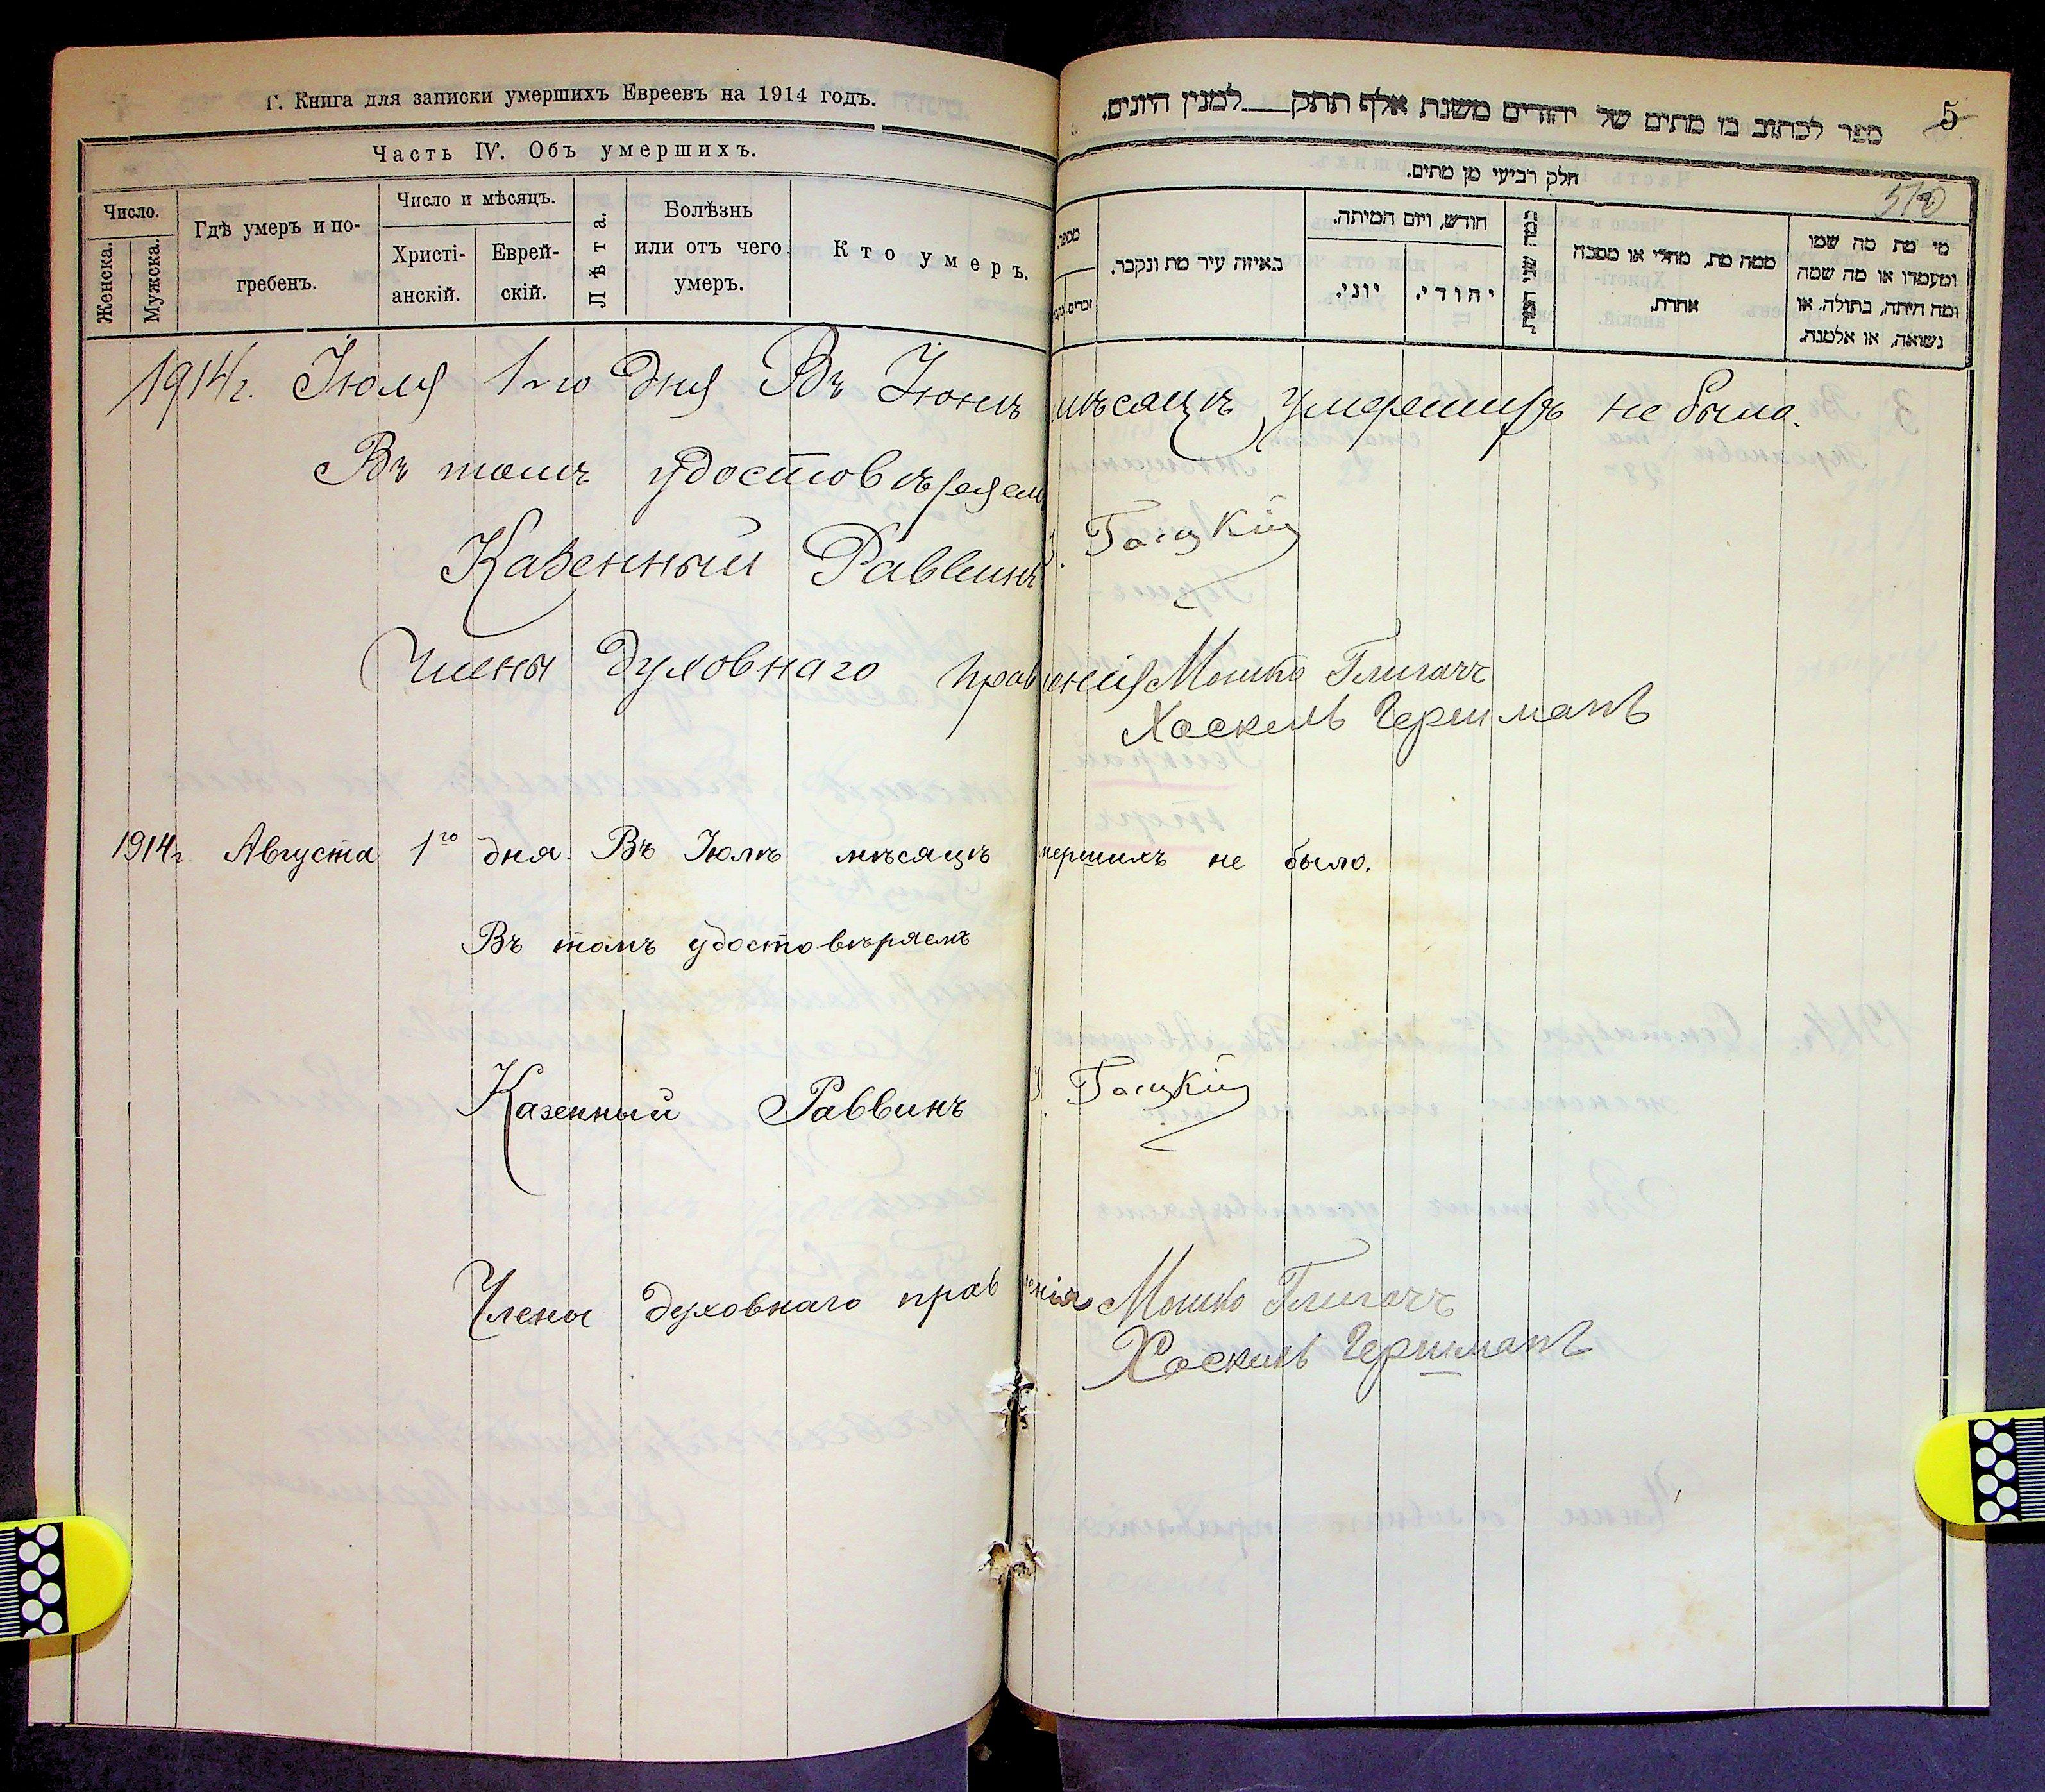 Г. Книга для записки умершихъ Евреевъ на 1914 годъ.
Часть IV. Объ умершихъ.
Число.
Женска.
Мужска.
Гдѣ умеръ и по-
гребенъ.
Число и мѣсяцъ.
Христі-
анскій.
Еврей-
скій.
Лѣта.
Болѣзнь
или отъ чего
умеръ.
Кто умеръ.
ספר לכתוב בו מתים של יהודים משנת אלף תתק למנין היונים.
5
חלק רביעי מן מתים.
מספר
זכרים
באיזה עיר מת ונקבר.
חודש, ויום המיתה.
יוני.
יהודי.
ממה מת, מחלי או מסבה
אחרת.
מי מת מה שמו
ומעמדו או מה שמה
ומה היתה, בתולה, או
נשואה, או אלמנה.
1914г. Іюля 1го дня Въ Іюнѣ мѣсяцѣ умершихъ не было.
Въ томъ удостовѣряем
Казенный Раввинъ Гацкій
Члены духовнаго правленія Мошко Глигачъ
Хаскель Гершманъ
1914г Августа 1го дня. Въ Іюлѣ мѣсяцѣ умершихъ не было.
Въ томъ удостовѣряемъ
Казенный Раввинъ Гацкій
Члены духовнаго правленія Мошко Глигачъ
Хаскель Гершманъ